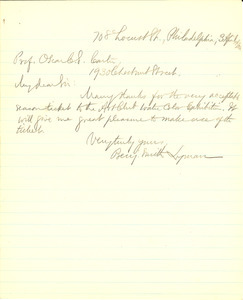 708 Locust St., Philadelphia,
Prof.
1930 Chestnut Street.
My dear Sir:
Many thanks for the very acceptable
season ticket to the Art Club Water Color Exhibition. It
will give me great pleasure to make use of the
ticket.
Very truly yours,
Benj. Smith Lyman